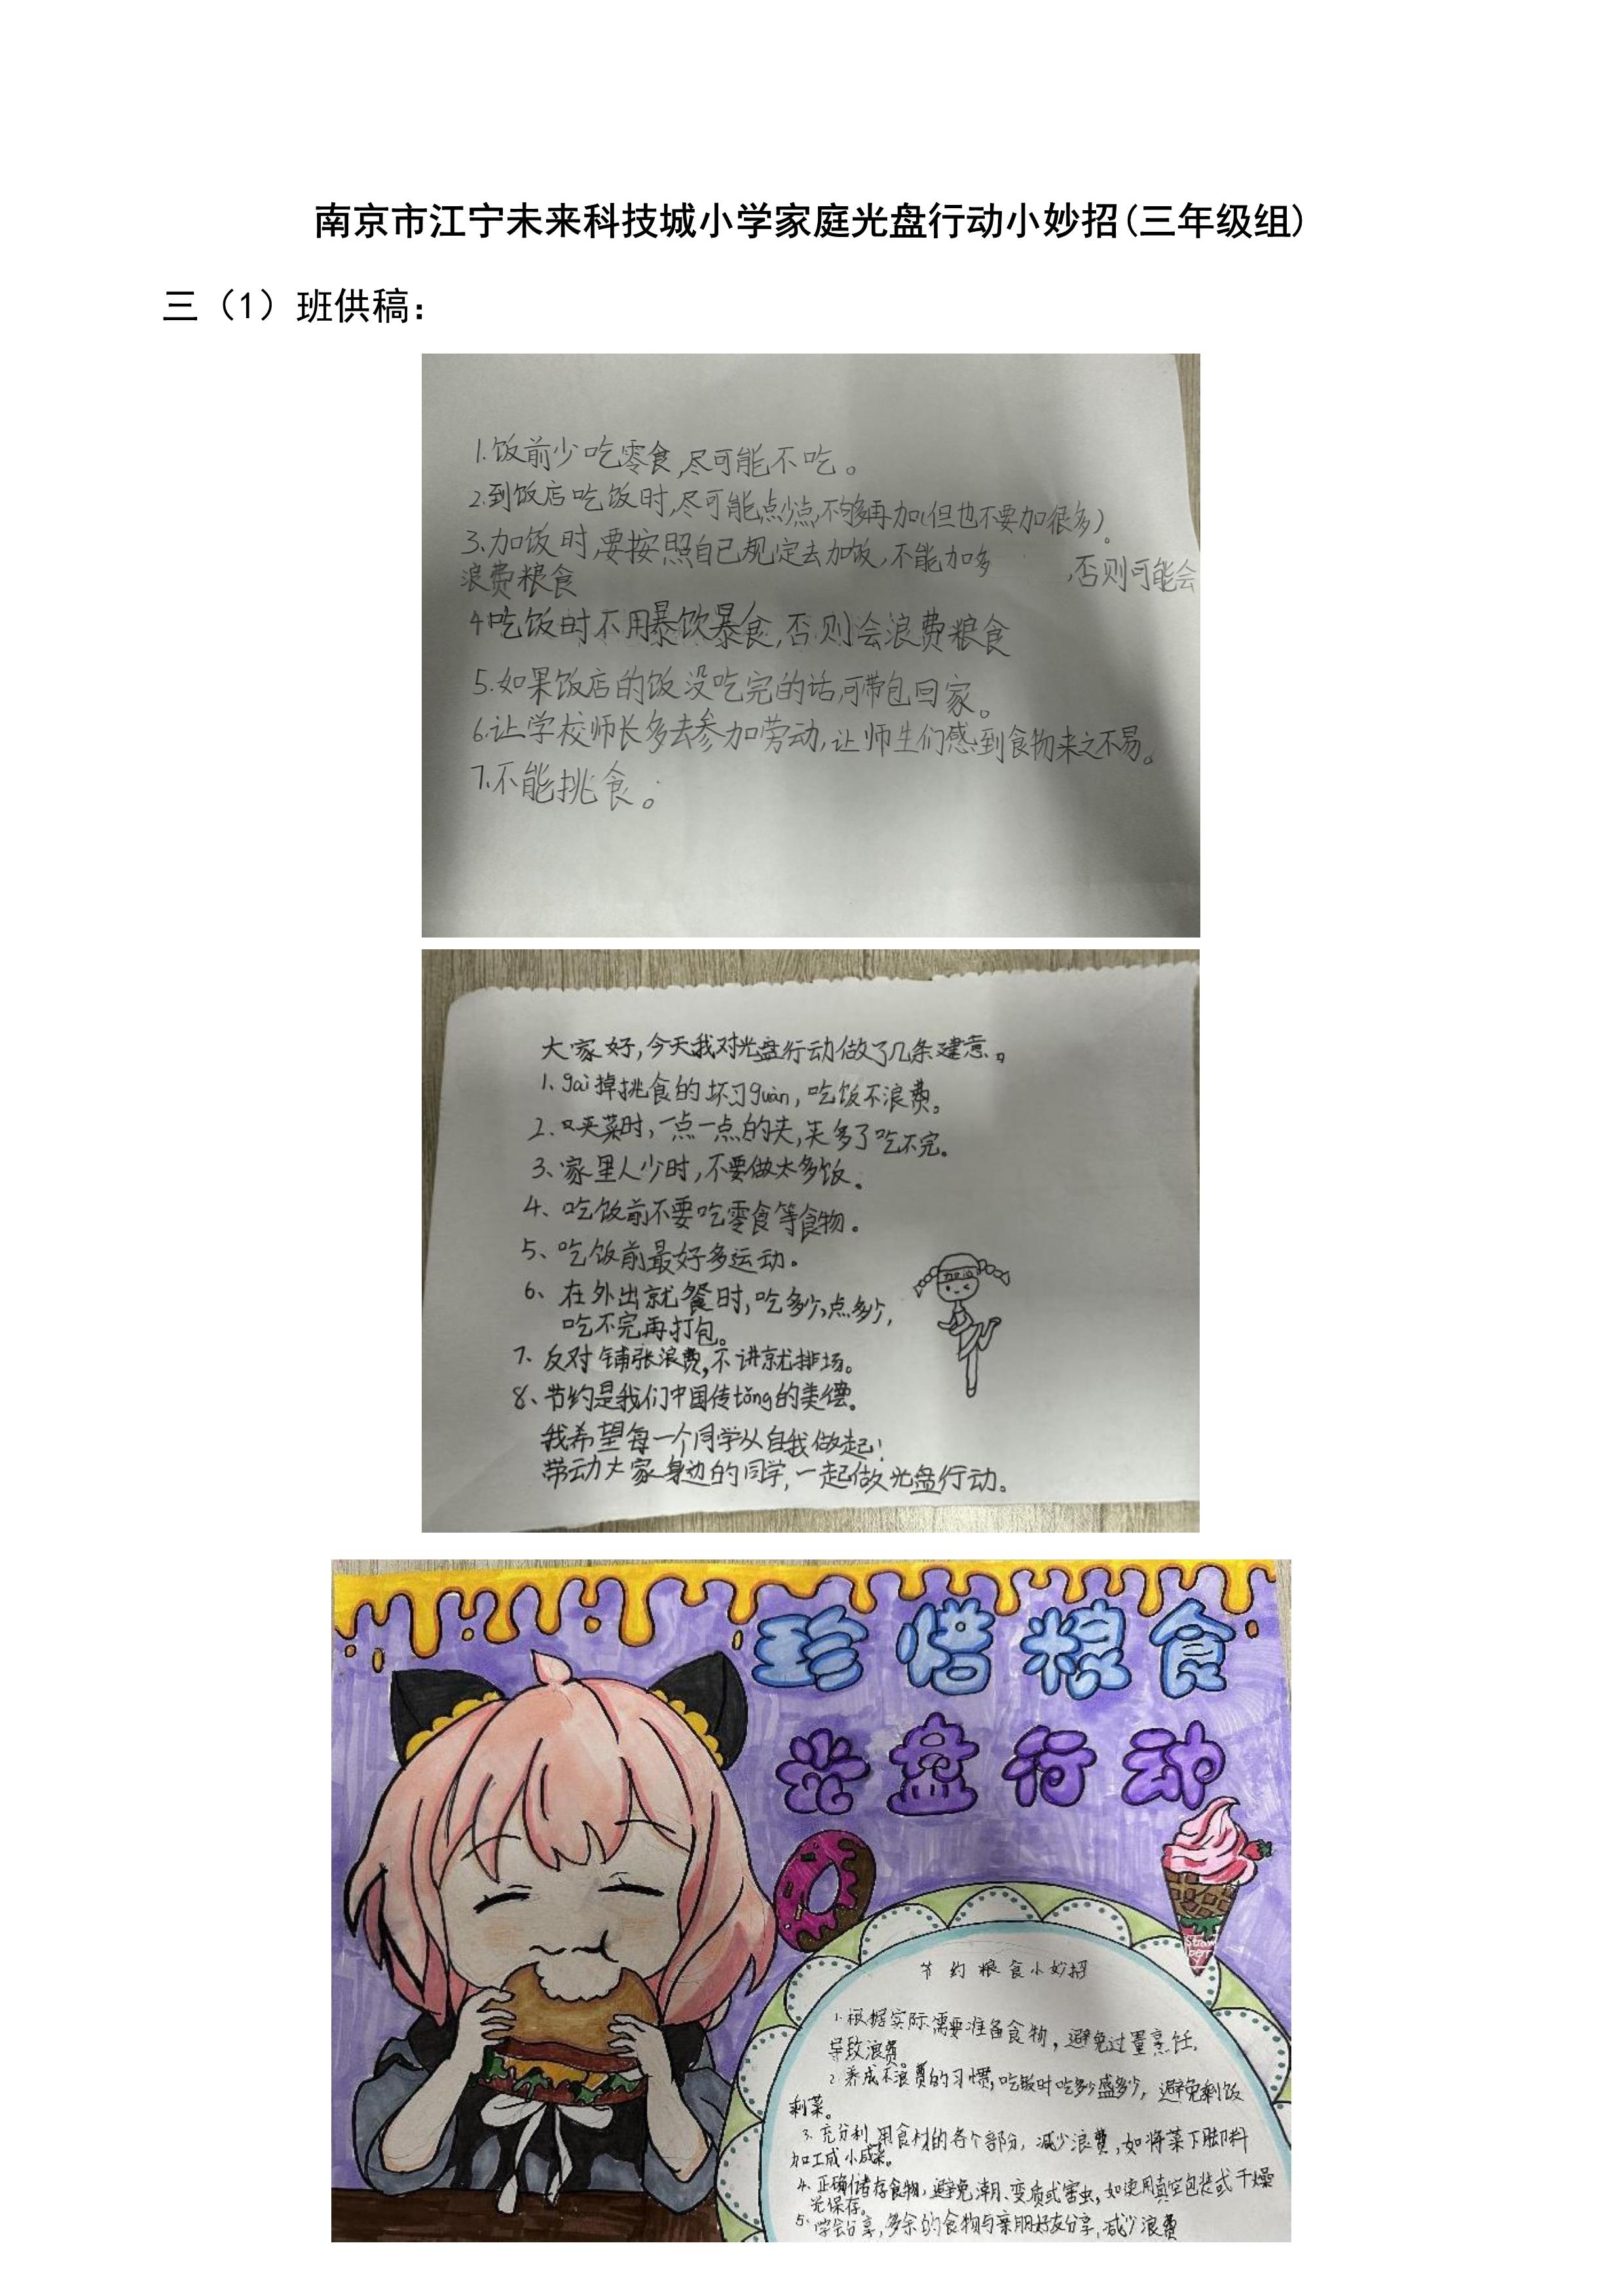 南京市江宁未来科技城小学家庭光盘行动小妙招(三年级组)
三（1）班供稿：
1.饭前少吃零食,尽可能不吃。
2.到饭店吃饭时,尽可能点少点,不够再加(但也不要加很多)。
3.加饭时,要按照自己规定去加饭,不能加多,否则可能会
浪费粮食
4吃饭时不用暴饮暴食,否则会浪费粮食
5.如果饭店的饭没吃完的话,可带包回家。
6.让学校师长多去参加劳动,让师生们感到食物来之不易。
7.不能挑食。
大家好,今天我对光盘行动做了几条建意。
1、gǎi掉挑食的坏习guàn,吃饭不浪费。
2、夹菜时,一点一点的夹,夹多了吃不完。
3、家里人少时,不要做太多饭。
4、吃饭前不要吃零食等食物。
5、吃饭前最好多运动。
6、在外出就餐时,吃多少,点多少,
吃不完再打包。
7、反对铺张浪费,不讲就排场。
8、节约是我们中国传tǒng的美德。
我希望每一个同学从自我做起!
带动大家身边的同学,一起做光盘行动。
加油
珍惜粮食
光盘行动
Straw
berry
节约粮食小妙招
1.根据实际需要准备食物，避免过量烹饪,
导致浪费。
2.养成不浪费的习惯,吃饭时吃多少盛多少，避免剩饭
剩菜。
3.充分利用食材的各个部分，减少浪费,如将菜下脚料
加工成小咸菜。
4.正确储存食物,避免潮、变质或害虫,如使用真空包装或干燥
光保存。
5.学会分享,多余的食物与亲朋好友分享,减少浪费